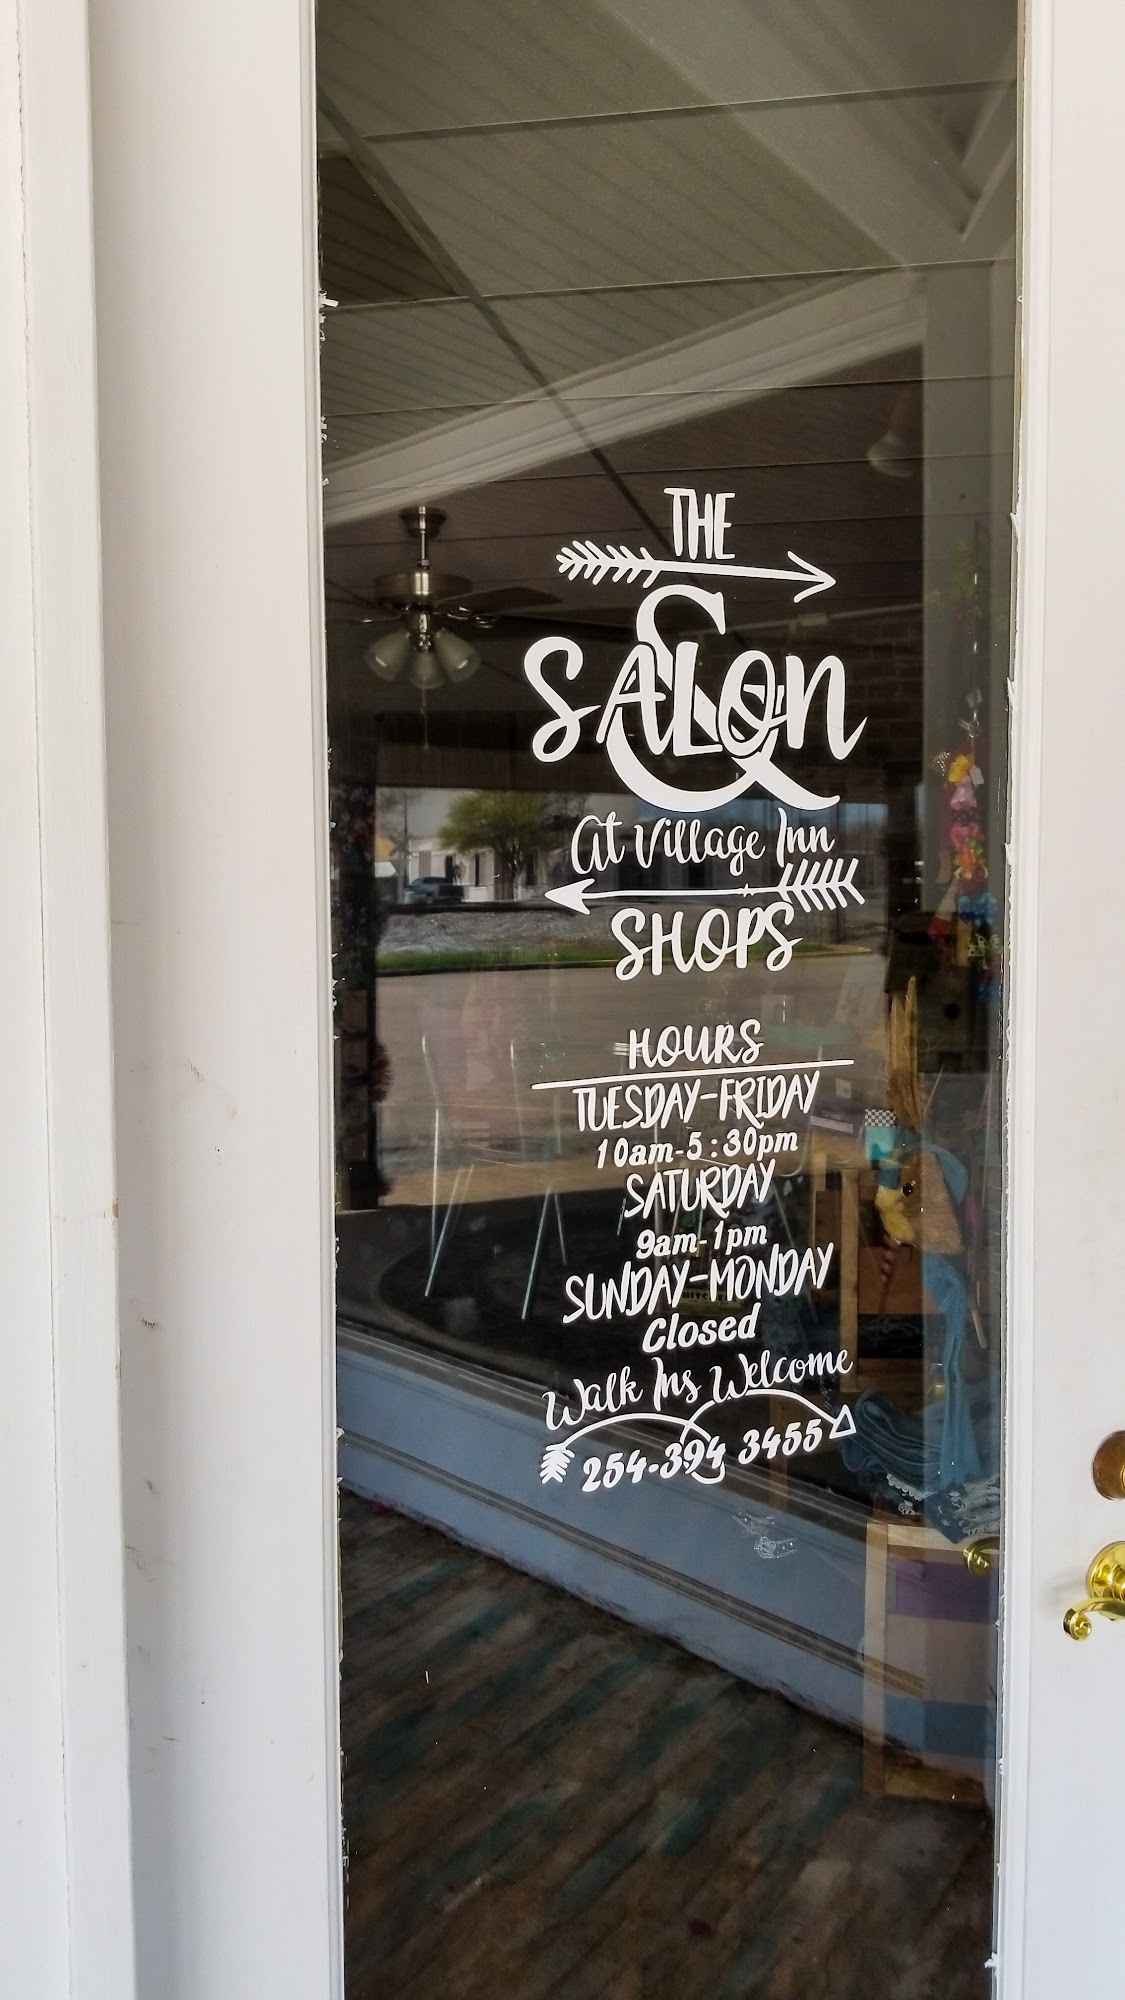 THE
&
SALON
At Village Inn
SHOPS
HOURS
TUESDAY-FRIDAY
10am-5:30pm
SATURDAY
9am-1pm
SUNDAY-MONDAY
Closed
Walk Ins Welcome
254-394 3455